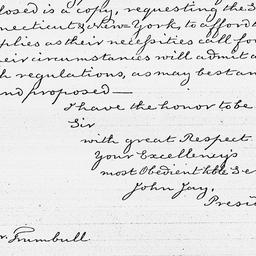 closed is a copy, requesting the S
necticut & New=York, to afford t
plies as their necessities call fo
eir circumstances will admit a
h regulations, as may best an
nd proposed—
I have the honor to be
Sir
with great Respect
Your Excellency's
most Obedient hble Se
John Jay,
Presi
r. Trumbull